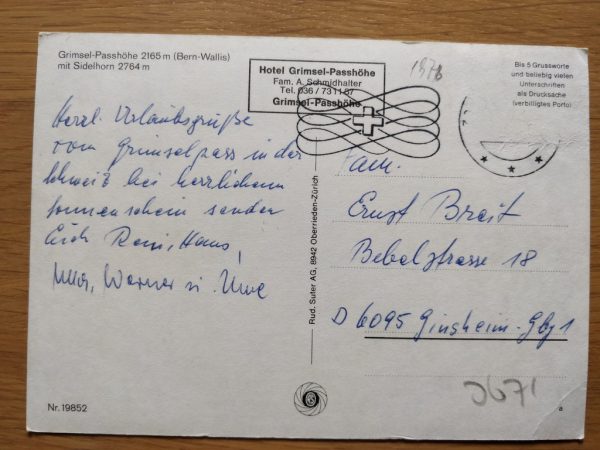 Grimsel-Passhöhe 2165 m (Bern-Wallis)
mit Sidelhorn 2764 m
Hotel Grimsel-Passhöhe
Fam. A. Schmidhalter
Tel. 036 / 73 11 87
Grimsel-Passhöhe
1976
Bis 5 Grussworte
und beliebig vielen
Unterschriften
als Drucksache
(verbilligtes Porto)
Herzl. Urlaubsgrüße
vom Grimselpass in der
Schweiz bei herrlichem
Sonnenschein senden
Euch Hans,
Werner u. Uwe
Rud. Suter AG, 8942 Oberrieden-Zürich
Fam.
Ernst Breit
Bebelstrasse 18
D 6095 Ginsheim-Gbg 1
Nr. 19852
a